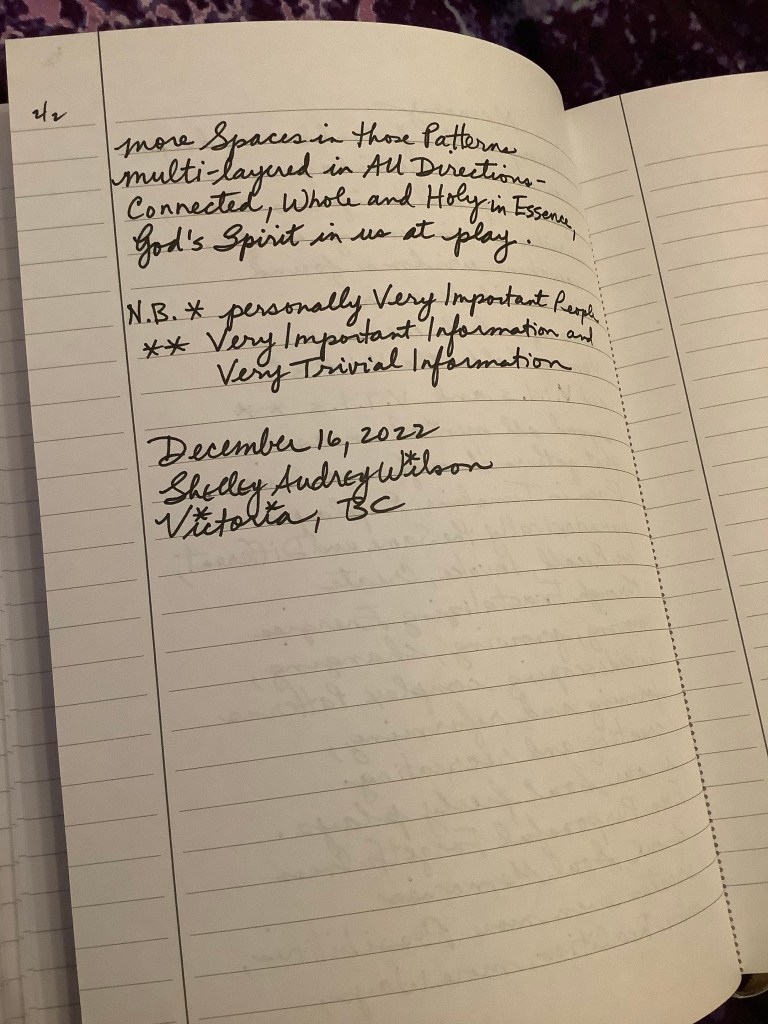 2/2
more Spaces in those Patterns
multi-layered in All Directions-
Connected, Whole and Holy in Essence,
God's Spirit in us at play.
N.B. * personally Very Important People
** Very Important Information and
Very Trivial Information
December 16, 2022
Shelley Audrey Wilson
Victoria, BC